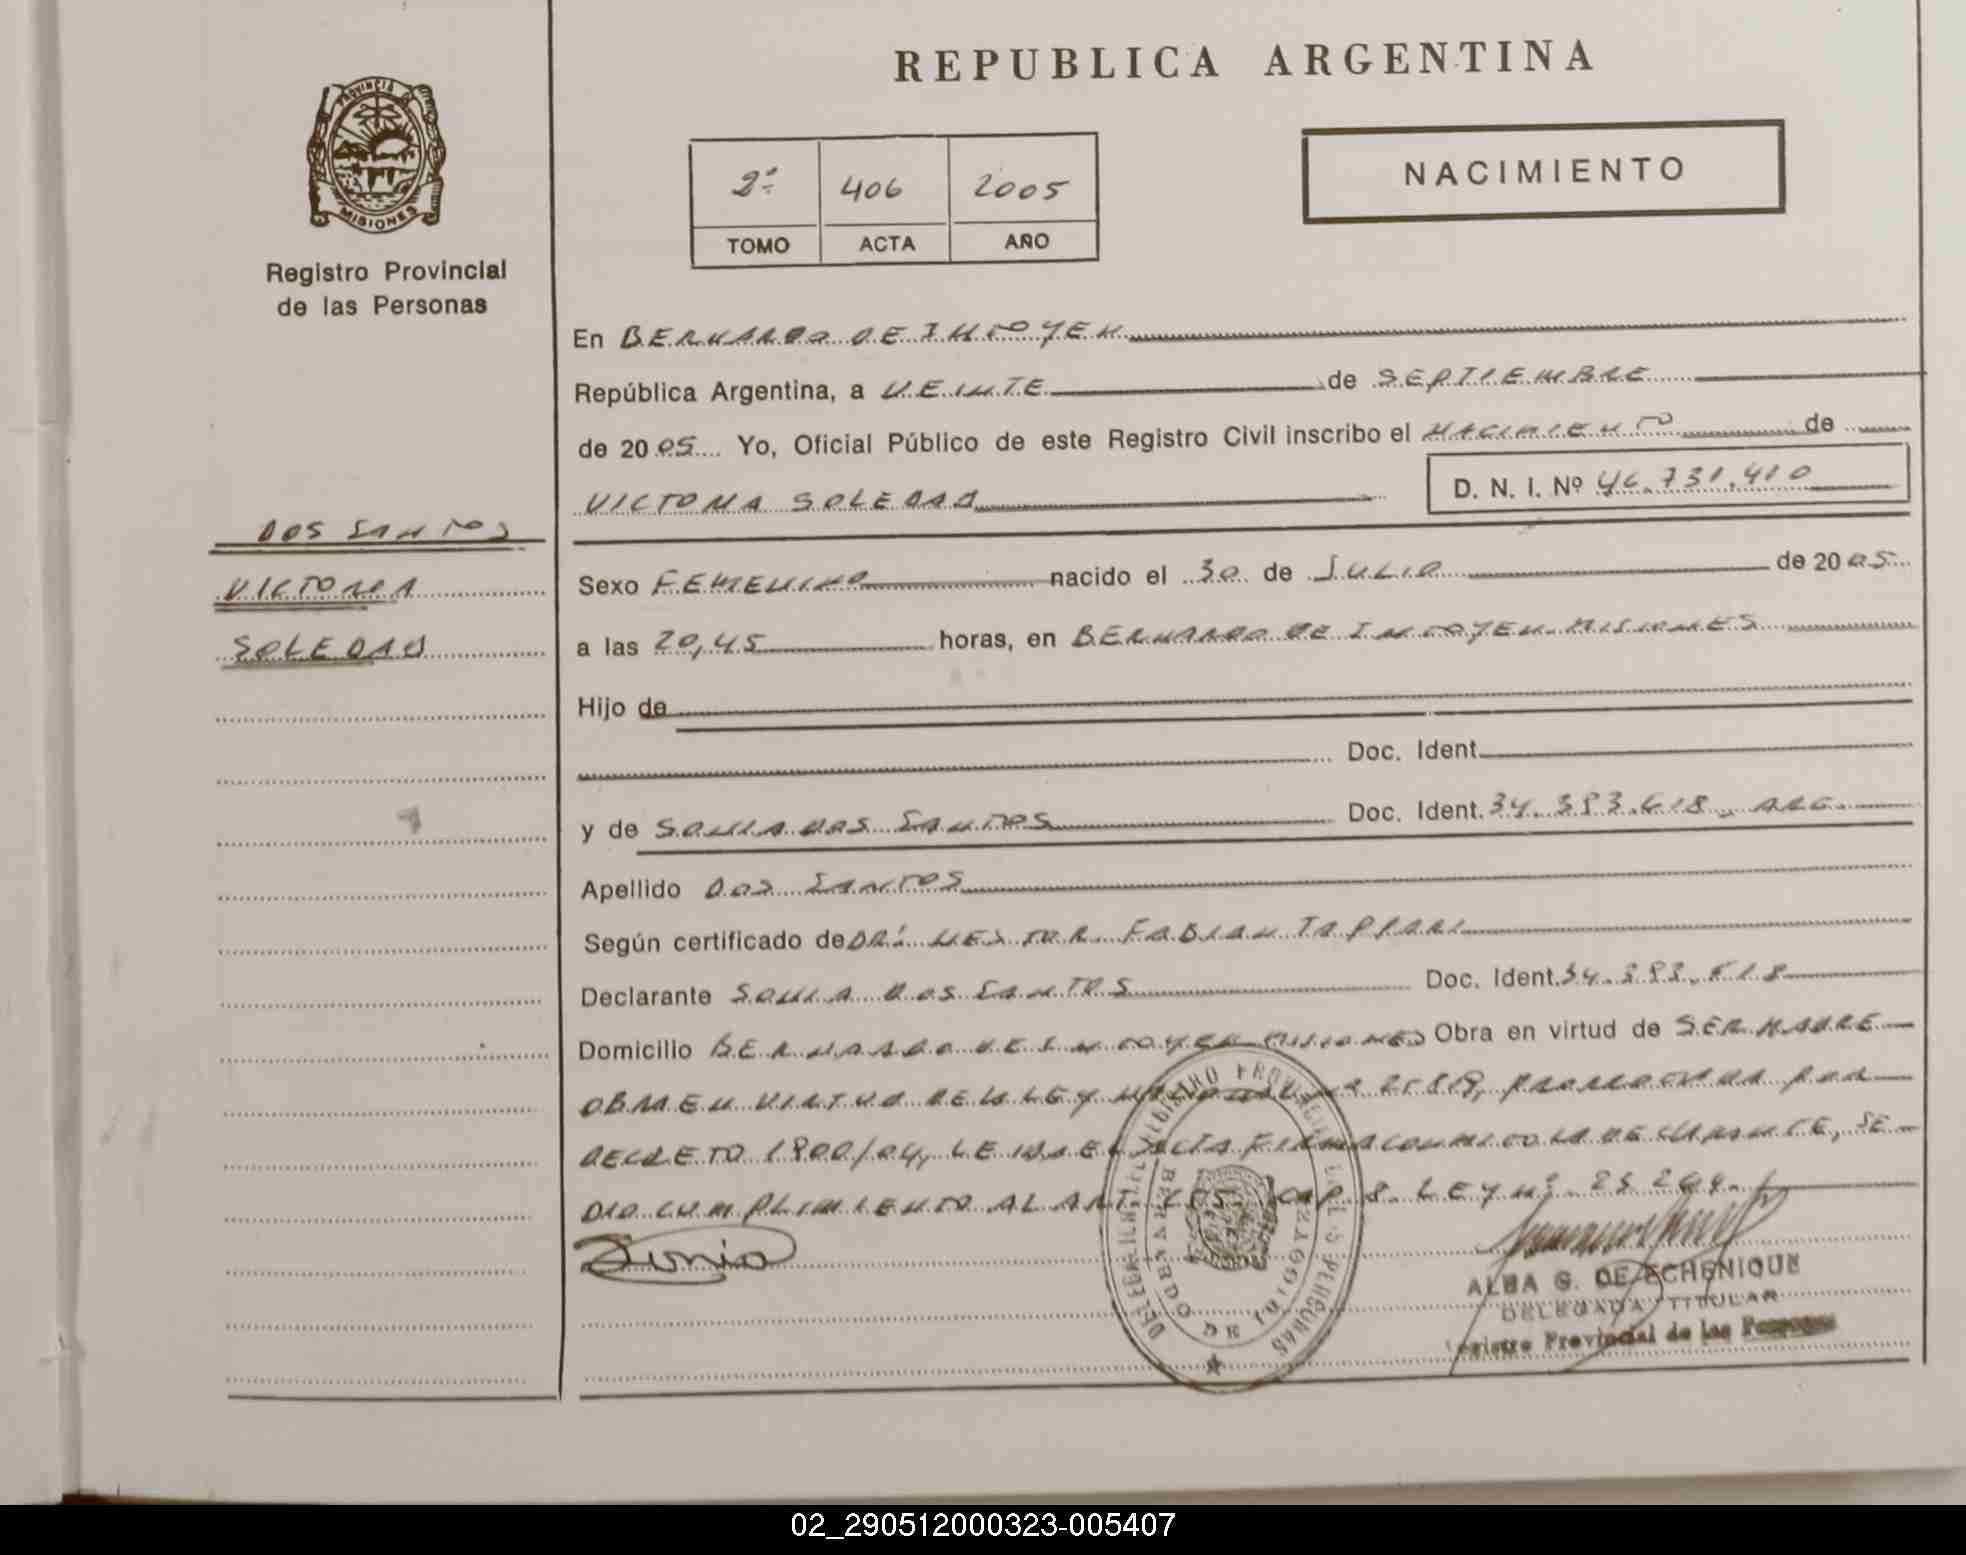 REPUBLICA ARGENTINA
PROVINCIA DE
MISIONES
Registro Provincial
de las Personas
2º 406 2005
TOMO ACTA AÑO
NACIMIENTO
En BERNARDO DE IRIGOYEN
República Argentina, a VEINTE de SEPTIEMBRE
de 2005 Yo, Oficial Público de este Registro Civil inscribo el NACIMIENTO de
VICTORIA SOLEDAD D. N. I. Nº 46.731.410
DOS SANTOS
VICTORIA
SOLEDAD
Sexo FEMENINO nacido el 30 de JULIO de 2005
a las 20,45 horas, en BERNARDO DE IRIGOYEN. MISIONES
Hijo de
Doc. Ident.
y de SONIA DOS SANTOS Doc. Ident. 34.393.618 ARG.
Apellido DOS SANTOS
Según certificado de DR: NESTOR FABIAN
Declarante SONIA DOS SANTOS Doc. Ident. 34.393.618
Domicilio BERNARDO DE IRIGOYEN MISIONES Obra en virtud de SER MADRE
OBRA EN VIRTUD DE LA LEY POR
DECRETO LEIDA EL ACTA FIRMA CONMIGO LA DECLARANTE, SE
DIO CUMPLIMIENTO AL ART. CAP. 8. LEY Nº 25.264.
Sonia
ALBA G. DE ECHENIQUE
DELEGADA TITULAR
Registro Provincial de las Personas
BERNARDO DE IRIGOYEN
02_290512000323-005407